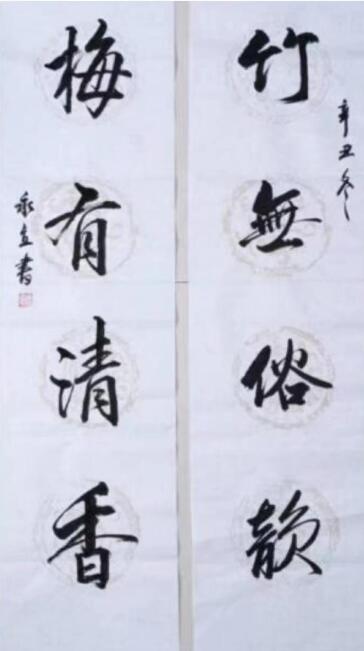 竹無俗韻
辛丑冬
梅有清香
永立書